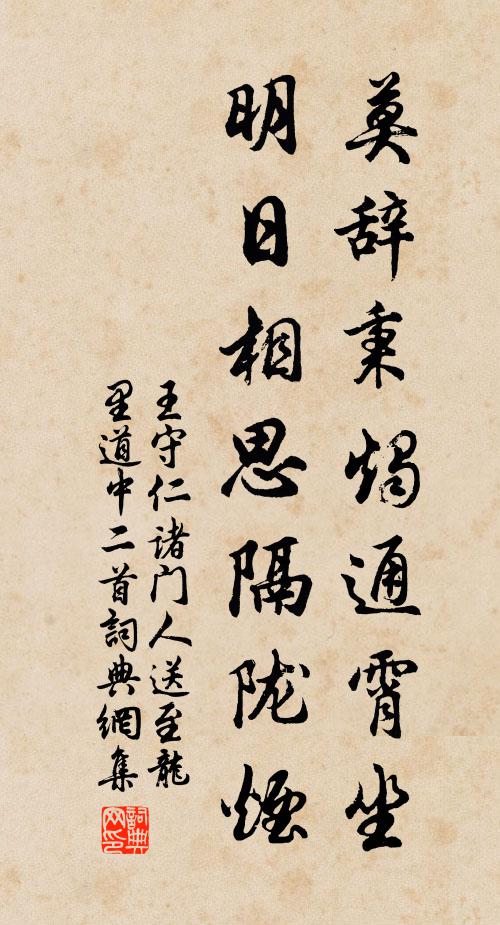 莫辞秉烛通霄坐
明日相思隔陇烟
王守仁诸门人送至龍
里道中二首詞典網集
詞典
网印